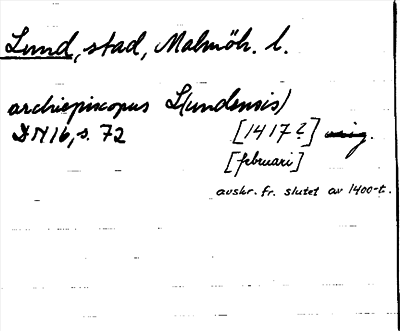 Lund, stad, Malmöh. l.
archiepiscopus L(undensis)
DN 16, s. 72 [1417?] orig.
[februari]
avskr. fr. slutet av 1400-t.